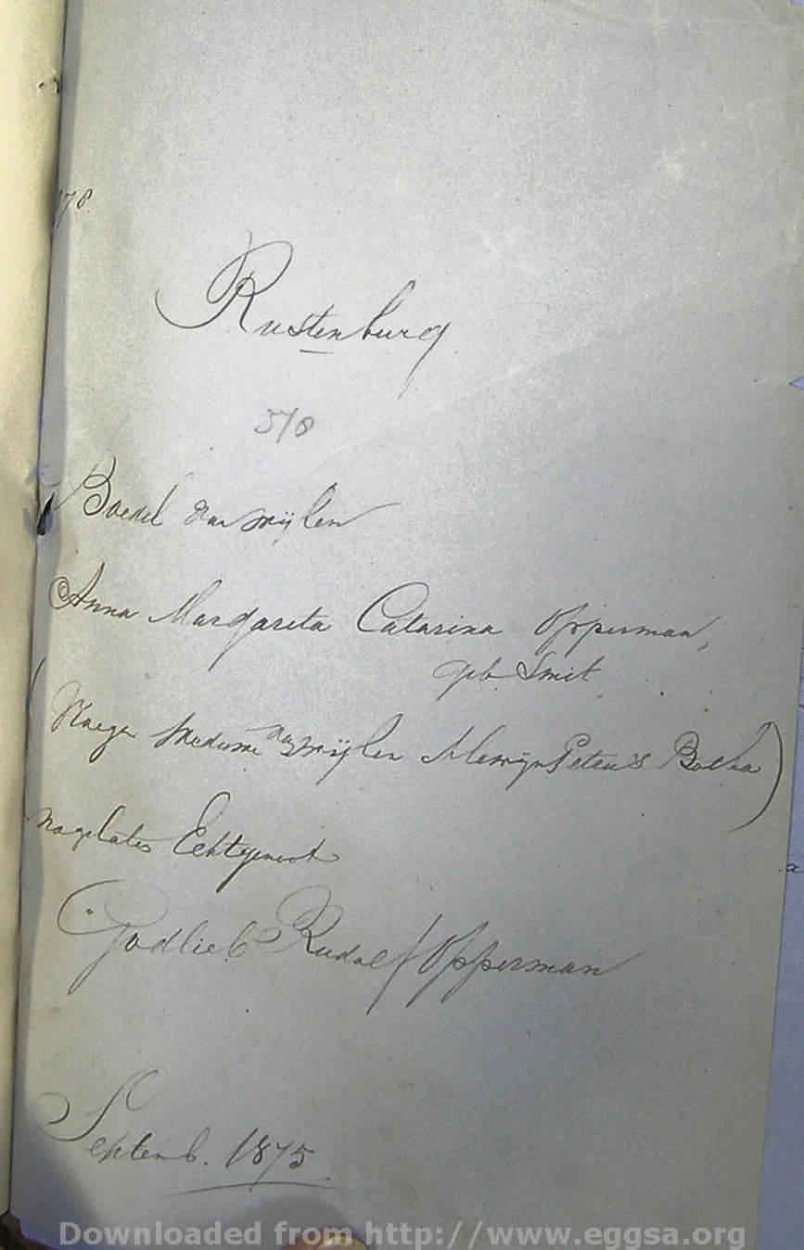 78
Rustenburg
578
Boedel van wijlen
Anna Margareta Catarina Opperman,
geb Smit
(Vroeger Weduwe van wijlen Petrus Botha)
nagelaten Echtgenoot
Godlieb Rudolf Opperman
Septemb. 1875
Downloaded from http://www.eggsa.org